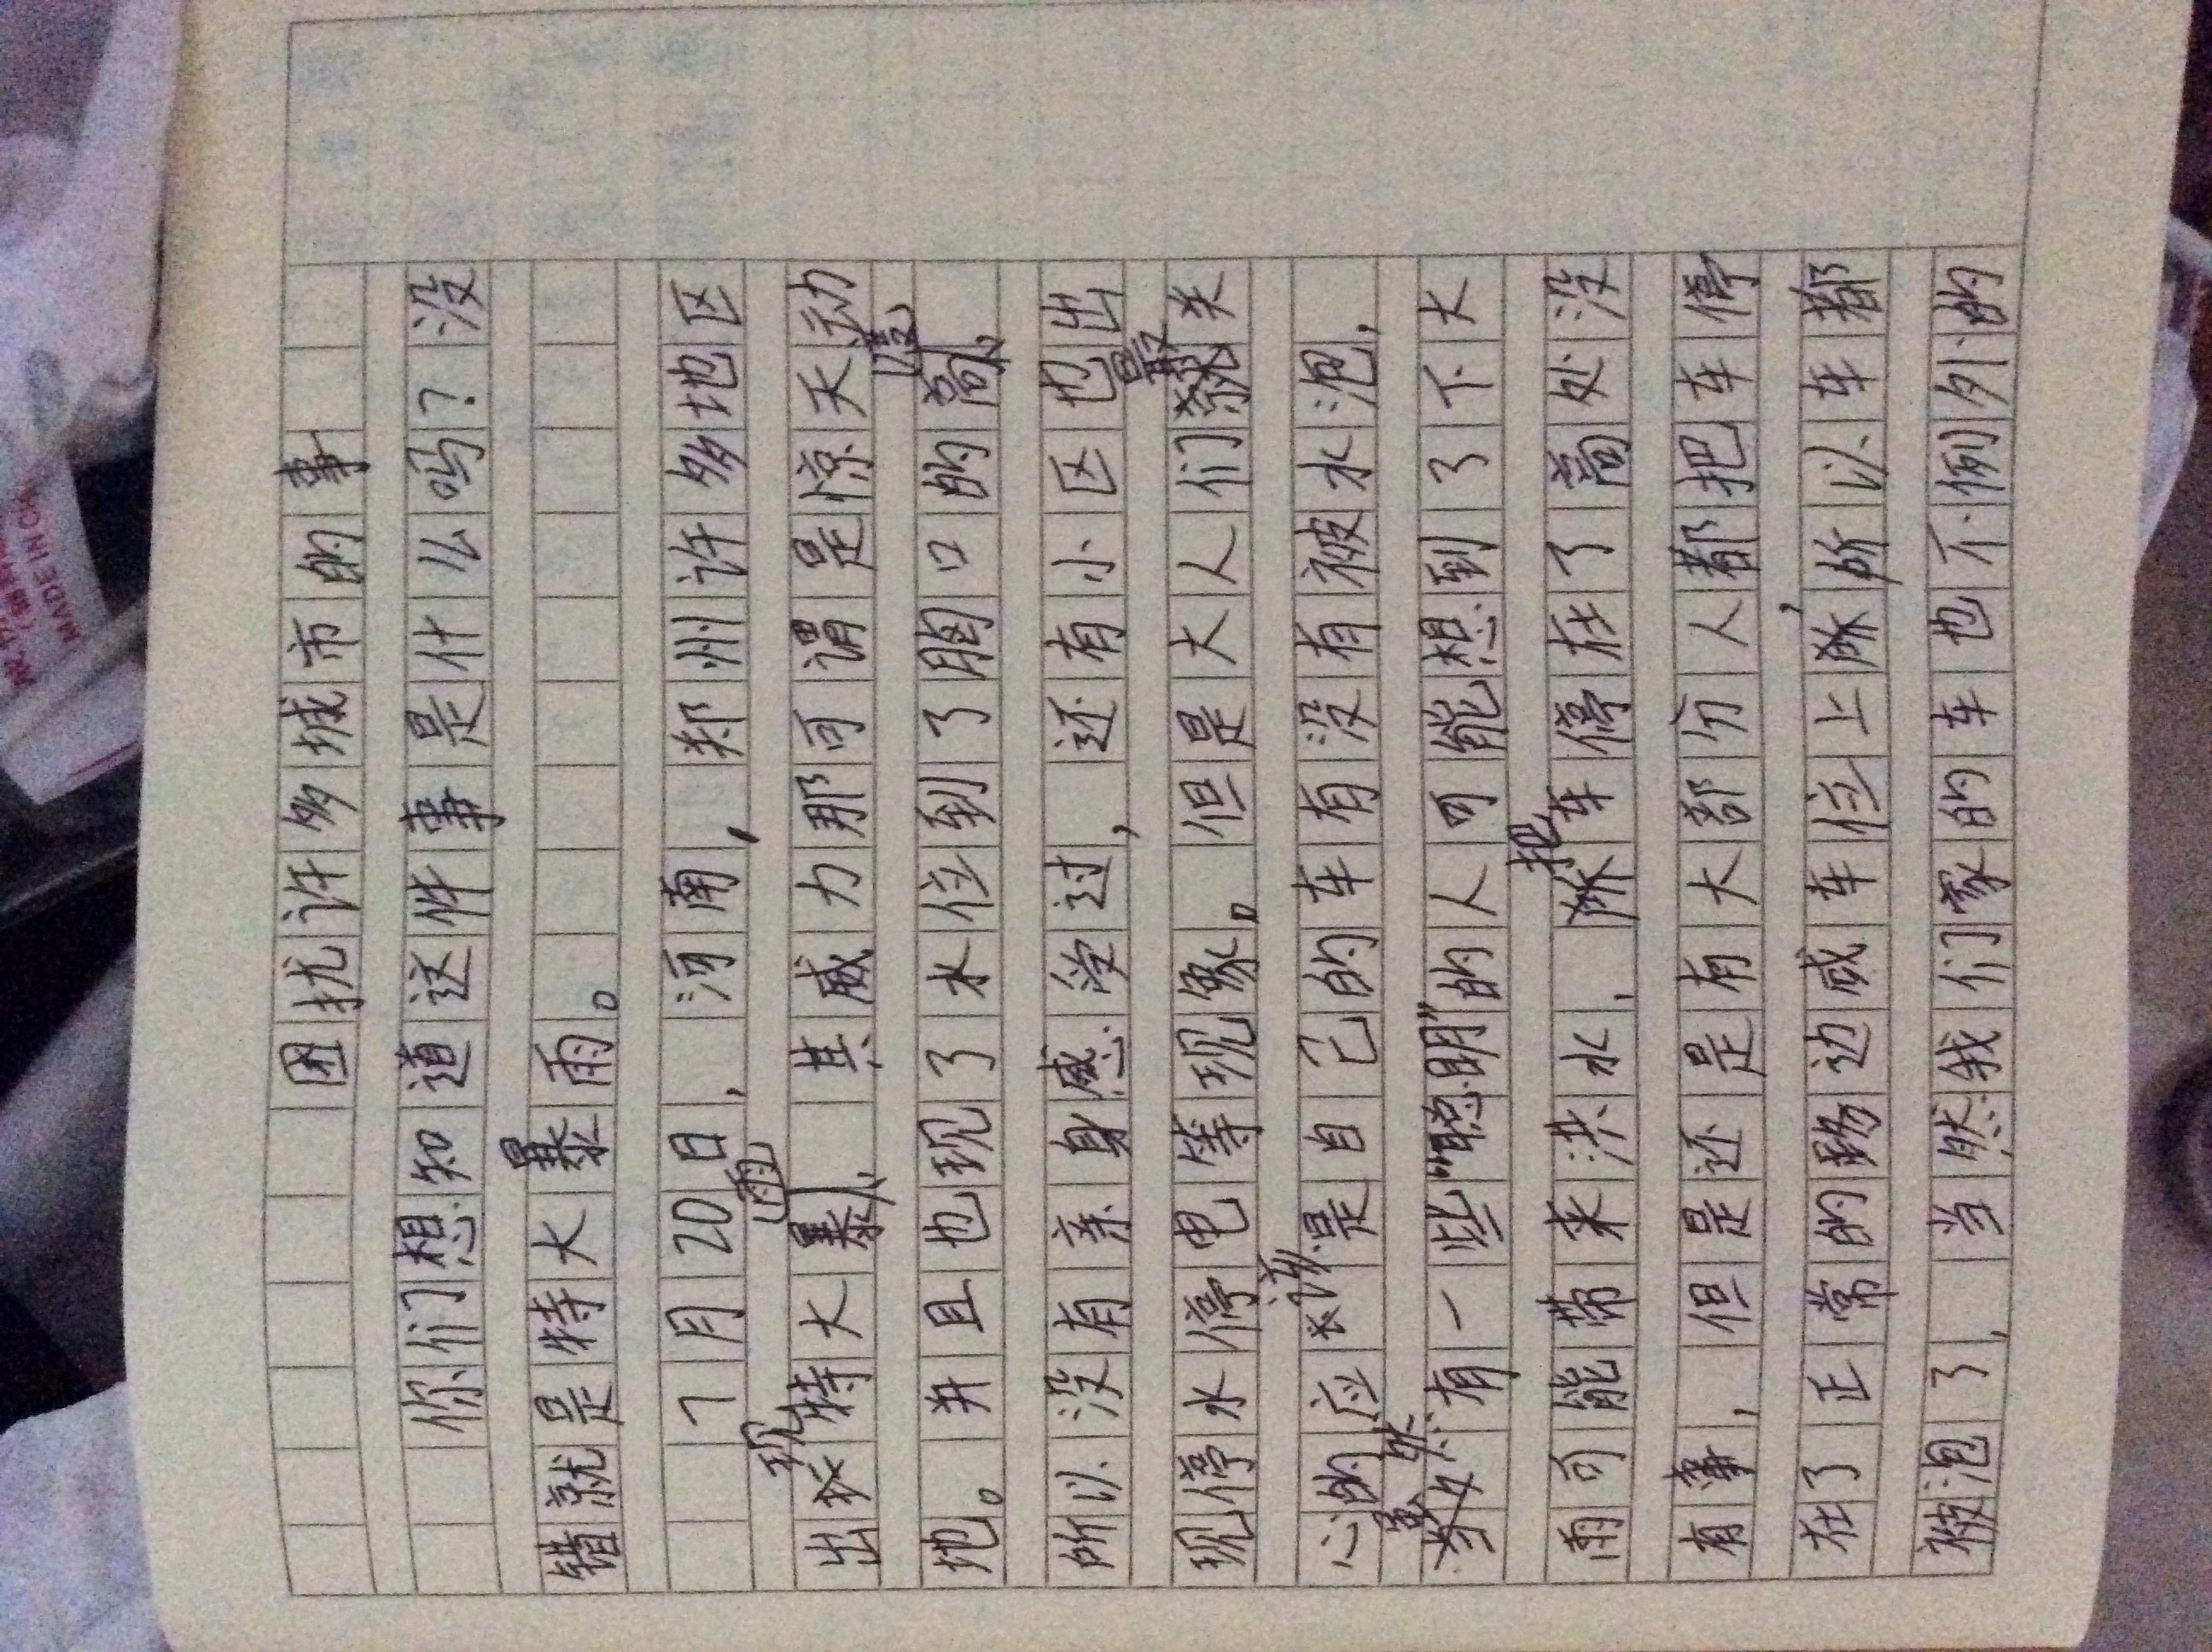 困扰许多城市的事
你们想知道这件事是什么吗?没
错就是特大暴雨。
7月20日,河南,郑州许多地区
出现特大暴雨、其威力那可谓是惊天动
地。并且也现了水位到了胸口的高度、
所以没有亲身感受过,还有小区也出
现停水停电等现象。但是大人们最关
心的应该是自己的车有没有被水泡,
虽然有一些“聪明”的人可能想到了下大
雨可能带来洪水,把车停在了高处没
有事,但是还是有大部分人都把车停
在了正常的路边或车位上,所以车都
被泡了,当然我们家的车也不例外的
MADE IN CH